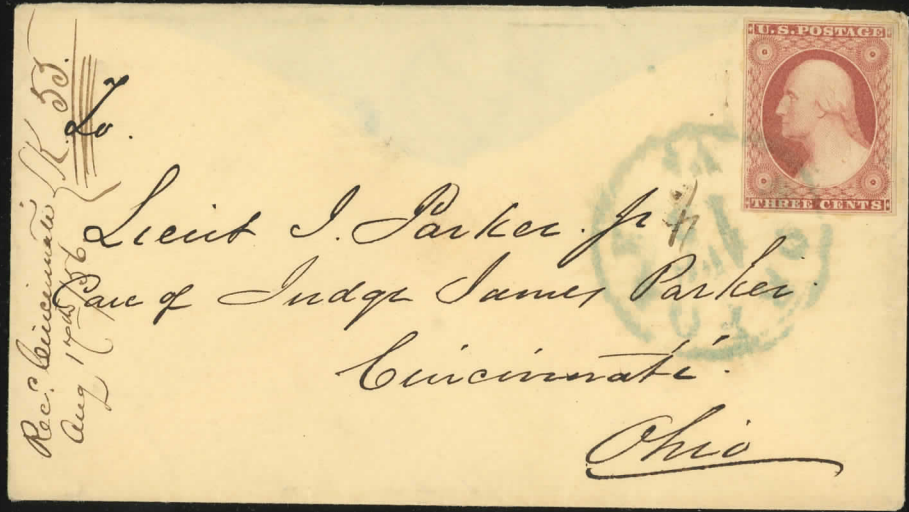 U.S. POSTAGE
THREE CENTS
To.
Lieut J. Parker. Jr
Care of Judge James Parker.
Cincinnati.
Ohio
Rec.d Cincinnati
Aug 17th /56
K 55.